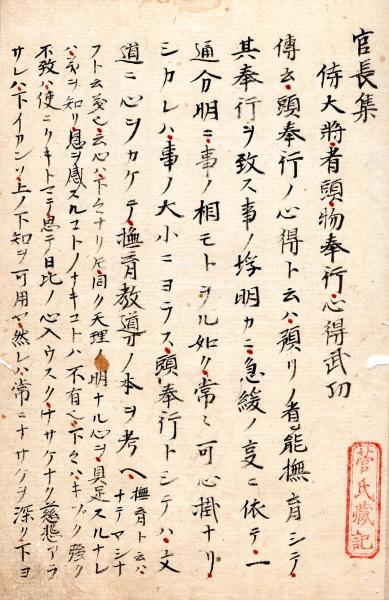 官長集
侍大将者頭物奉行心得武功
傳云頭奉行ノ心得ト云ハ預リノ者ヲ能撫育シテ
其奉行ヲ致ス事ノ埒明カニ急緩ノ変ニ依テ一
通分明ニ事ノ相モトヲル如ク常ニ可心掛ナリ
シカレハ事ノ大小ニヨラス頭奉行トシテハ文
道ニ心ヲカケテ撫育教道ヲノ本ヲ考ヘ撫育ト云ハ
ナテヤシナ
フト云義也云心ハ下々ナリ𪜈同ク天理ノ明ナル心ヲ具足スルナレ
ハ気ヲ知リ恩ヲ感スルコトノナキコトハ不有也下々ハキヅク強ク
不致ハ使ニクキトマテ思テ日比ノ心入ウスクナサケナク慈悲アラ
サレハ下イカンソ上ノ下知ヲ可用ヤ然レハ常ニナサケヲ深ク下ヨ
菅氏蔵記